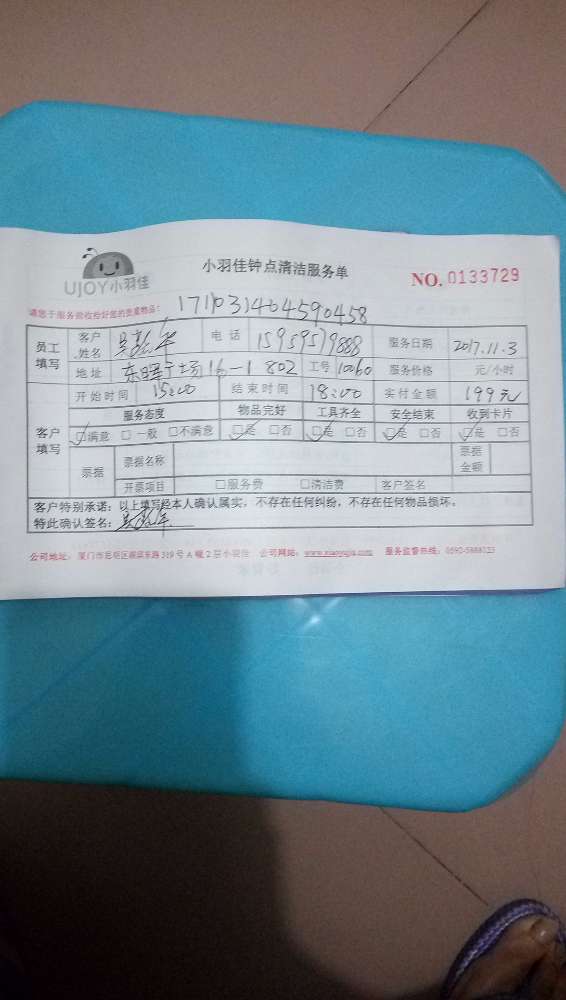 UJOY小羽佳
小羽佳钟点清洁服务单
NO. 0133729
请您于服务前收拾好您的贵重物品!
171031404590458
员工填写 客户姓名 吴 电话 15959579888 服务日期 2017.11.3
地址 东 广场16-1 802 工号 10060 服务价格 元/小时
开始时间 15:00 结束时间 18:00 实付金额 199元
客户填写 服务态度 物品完好 工具齐全 安全结束 收到卡片
☑满意 □一般 □不满意 ☑是 □否 ☑是 □否 ☑是 □否 ☑是 □否
票据 票据名称 票据金额
开票项目 □服务费 □清洁费 客户签名
客户特别承诺:以上填写经本人确认属实,不存在任何纠纷,不存在任何物品损坏。
特此确认签名:吴
公司地址:厦门市思明区湖滨东路319号A幢2层小羽佳 公司网站:www.xiaoyujia.com 服务监督热线:0592-5888123